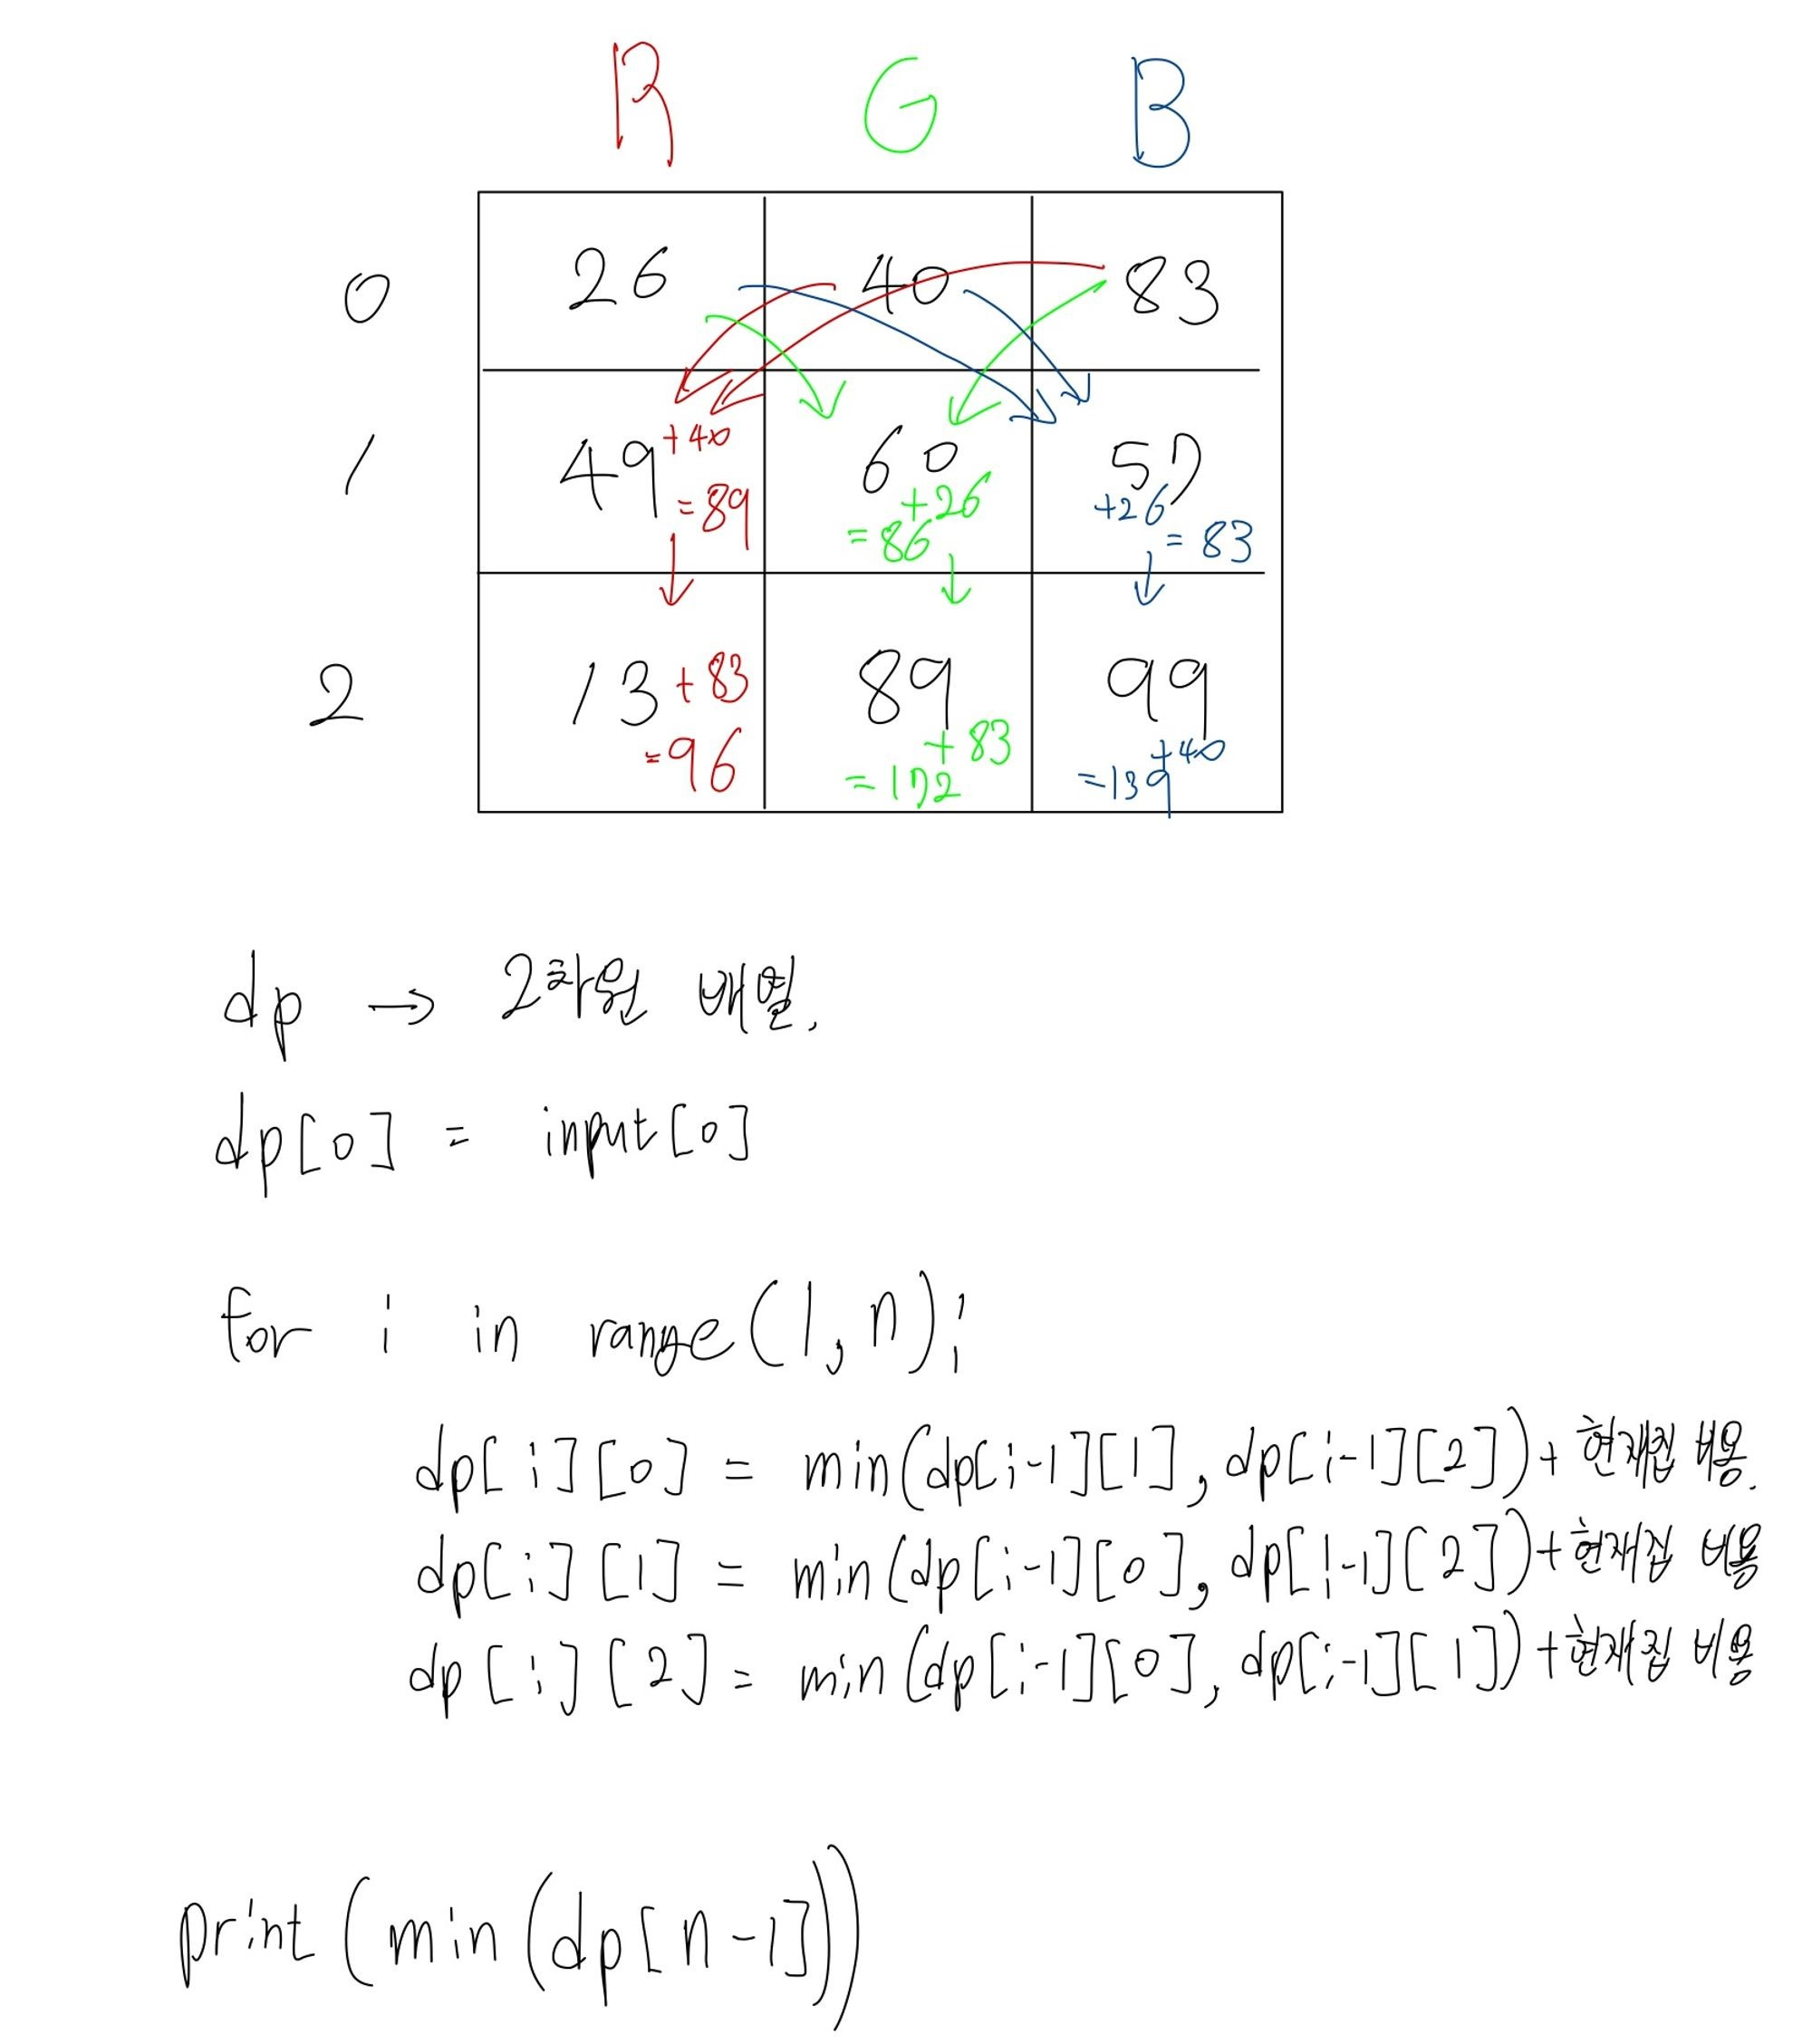 R G B
0 26 40 83
1 49 +40 =89 60 +26 =86 57 +26 =83
2 13 +83 =96 89 +83 =172 99 +40 =139
dp → 2차원 배열.
dp[0] = input[0]
for i in range(1, n):
dp[i][0] = min(dp[i-1][1], dp[i-1][2]) + 현재집 비용.
dp[i][1] = min(dp[i-1][0], dp[i-1][2]) + 현재집 비용
dp[i][2] = min(dp[i-1][0], dp[i-1][1]) + 현재집 비용
print(min(dp[n-1]))